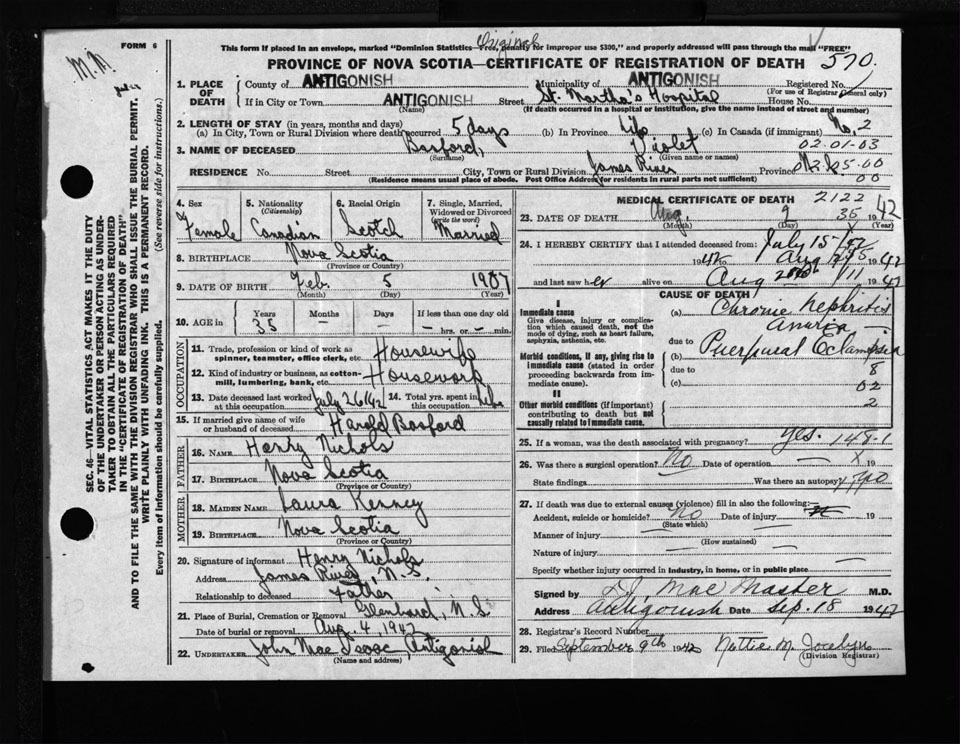 FORM 6
Original
This form if placed in an envelope, marked "Dominion Statistics—Free, penalty for improper use $300," and properly addressed will pass through the mail "FREE"
PROVINCE OF NOVA SCOTIA—CERTIFICATE OF REGISTRATION OF DEATH 570.
1. PLACE OF DEATH County of ANTIGONISH Municipality of ANTIGONISH Registered No.
(For use of Registrar General only)
If in City or Town ANTIGONISH Street St. Martha's Hospital House No.
(Name) (If death occurred in a hospital or institution, give the name instead of street and number)
2. LENGTH OF STAY (in years, months and days) No. 2
(a) In City, Town or Rural Division where death occurred 5 days (b) In Province Life (c) In Canada (if immigrant)
02.01-03
3. NAME OF DECEASED Basford, Violet
(Surname) (Given name or names)
RESIDENCE No. Street City, Town or Rural Division James River Province N.S.
(Residence means usual place of abode. Post Office Address for residents in rural parts not sufficient)
4. Sex 5. Nationality (Citizenship) 6. Racial Origin 7. Single, Married, Widowed or Divorced (write the word)
Female Canadian Scotch Married
8. BIRTHPLACE Nova Scotia
(Province or Country)
9. DATE OF BIRTH Feb. 5 1907
(Month) (Day) (Year)
10. AGE in Years Months Days If less than one day old
35 – – – hrs. or – min.
OCCUPATION
11. Trade, profession or kind of work as spinner, teamster, office clerk, etc. Housewife
12. Kind of industry or business, as cotton-mill, lumbering, bank, etc. Housework
13. Date deceased last worked at this occupation July 26/42 14. Total yrs. spent in this occupation Life
15. If married give name of wife or husband of deceased Harold Basford
FATHER
16. NAME Henry Nichols
17. BIRTHPLACE Nova Scotia
(Province or Country)
MOTHER
18. MAIDEN NAME Laura Kenney
19. BIRTHPLACE Nova Scotia
(Province or Country)
20. Signature of informant Henry Nichols
Address James River, N.S.
Relationship to deceased Father
21. Place of Burial, Cremation or Removal N.S.
Date of burial or removal Aug. 4, 1942
22. UNDERTAKER John MacIsaac, Antigonish
(Name and address)
MEDICAL CERTIFICATE OF DEATH 2122
23. DATE OF DEATH Aug. 2 35 1942
(Month) (Day) (Year)
24. I HEREBY CERTIFY that I attended deceased from: July 15
1942 Aug 1942
and last saw her alive on Aug 1942
CAUSE OF DEATH
I
Immediate cause
Give disease, injury or complication which caused death, not the mode of dying, such as heart failure, asphyxia, asthenia, etc.
(a) Chronic Nephritis
Anuria
due to
Morbid conditions, if any, giving rise to immediate cause (stated in order proceeding backwards from immediate cause).
(b) Puerperal Eclampsia
due to 8
(c) 02
II
Other morbid conditions (if important) contributing to death but not causally related to immediate cause.
2
25. If a woman, was the death associated with pregnancy? yes. 148-1
26. Was there a surgical operation? No Date of operation X 19
State findings Was there an autopsy? No
27. If death was due to external causes (violence) fill in also the following:
Accident, suicide or homicide? No Date of injury 19
(State which)
Manner of injury
(How sustained)
Nature of injury
Specify whether injury occurred in industry, in home, or in public place
Signed by MacMaster M.D.
Address Antigonish Date Sep. 18 1942
28. Registrar's Record Number
29. Filed September 9th 1942 Nettie M. Jocelyn
(Division Registrar)
SEC. 46—VITAL STATISTICS ACT MAKES IT THE DUTY OF THE UNDERTAKER OR PERSON ACTING AS UNDERTAKER TO OBTAIN ALL THE PARTICULARS REQUIRED IN THE "CERTIFICATE OF REGISTRATION OF DEATH" AND TO FILE THE SAME WITH THE DIVISION REGISTRAR WHO SHALL ISSUE THE BURIAL PERMIT.
WRITE PLAINLY WITH UNFADING INK. THIS IS A PERMANENT RECORD.
Every item of information should be carefully supplied. (See reverse side for instructions.)